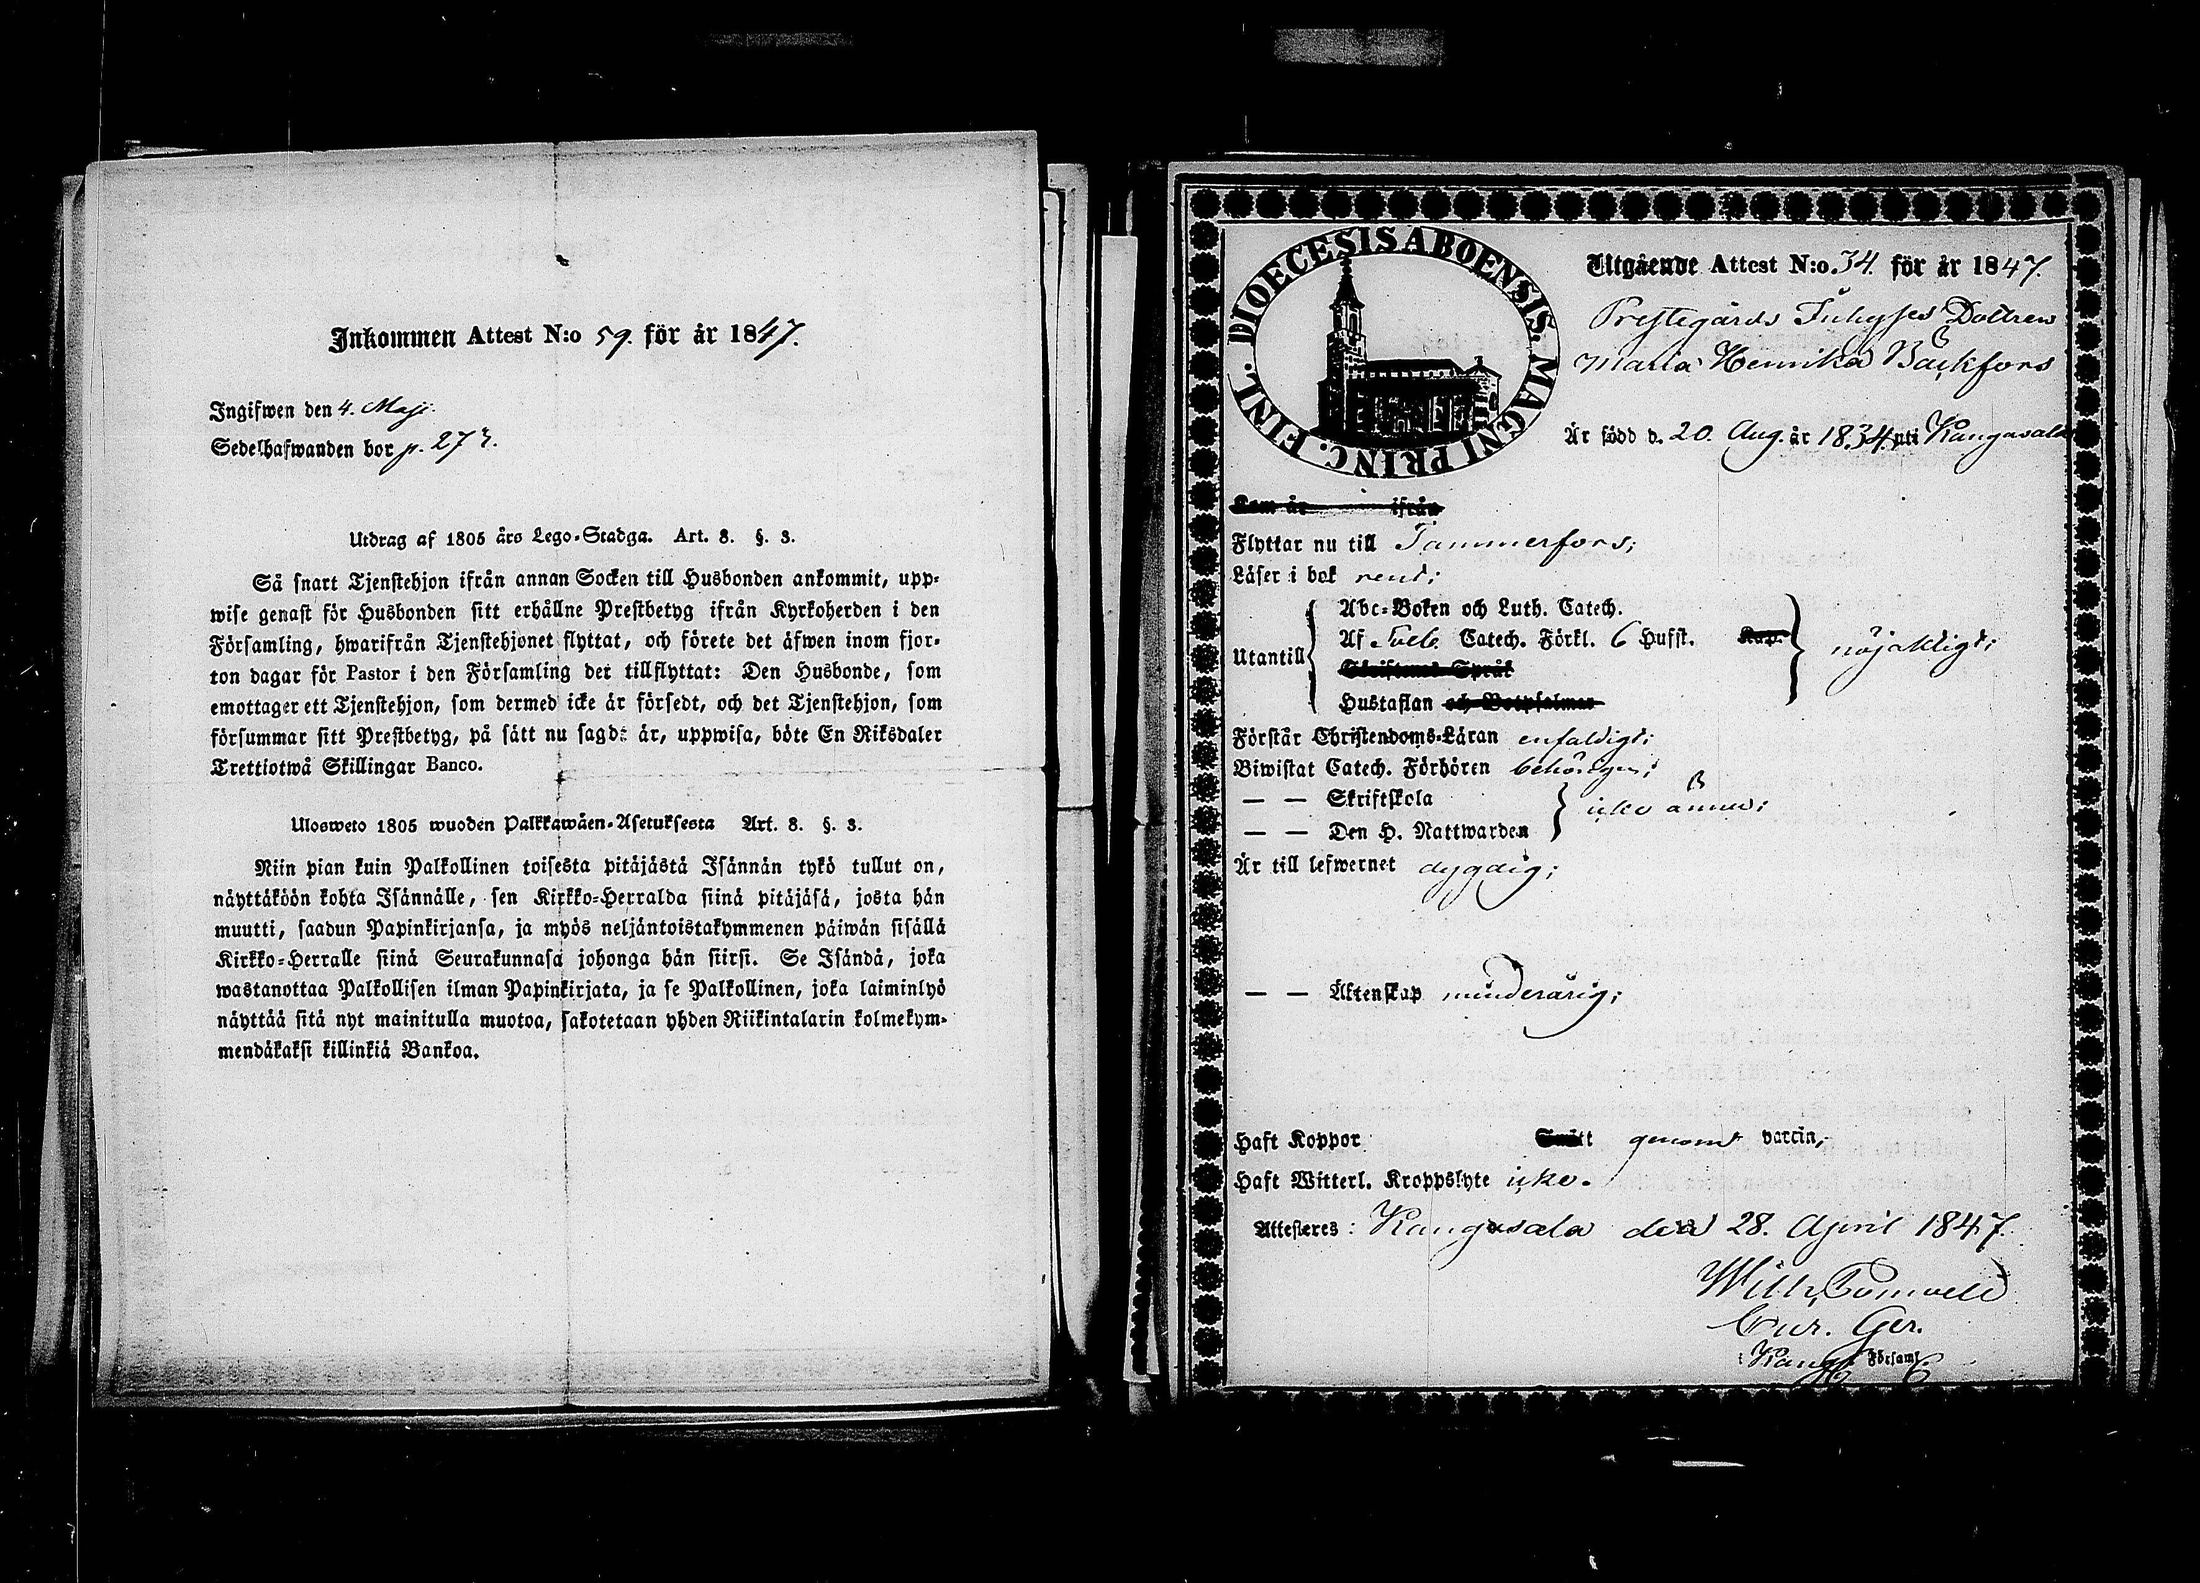 Inkommen Attest N:o 59. för år 1847.
Ingifwen den 4. Maji.
Sedelhafwanden bor p. 273.
Utdrag af 1805 års Lego-Stadga. Art. 8. §. 3.
Så snart Tjenstehjon ifrån annan Socken till Husbonden ankommit, upp-
wise genast för Husbonden sitt erhållne Prestbetyg ifrån Kyrkoherden i den
Församling, hwarifrån Tjenstehjonet flyttat, och förete det äfwen inom fjor-
ton dagar för Pastor i den Församling det tillflyttat: Den Husbonde, som
emottager ett Tjenstehjon, som dermed icke är försedt, och det Tjenstehjon, som
försummar sitt Prestbetyg, på sätt nu sagdt är, uppwisa, böte En Riksdaler
Trettiotwå Skillingar Banco.
Ulosweto 1805 wuoden Palkkawäen-Asetuksesta Art. 8. §. 3.
Niin pian kuin Palkollinen toisesta pitäjästä Isännän tykö tullut on,
näyttäköön kohta Isännälle, sen Kirkko-Herralda siinä pitäjäsä, josta hän
muutti, saadun Papinkirjansa, ja myös neljäntoistakymmenen päiwän sisällä
Kirkko-Herralle siinä Seurakunnasa johonga hän siirsi. Se Isändä, joka
wastanottaa Palkollisen ilman Papinkirjata, ja se Palkollinen, joka laiminlyö
näyttää sitä nyt mainitulla muotoa, sakotetaan yhden Riikintalarin kolmekym-
mendäkaksi killinkiä Bankoa.
DIOECESIS ABOENSIS. MAGNI PRINC. FINL.
Utgående Attest N:o. 34. för år 1847.
Prestegårds Inhyses Dottren
Maria Henrika Bäckfors
Är född d. 20. Aug. år 1834. uti Kangasala
Kom år ifrån
Flyttar nu till Tammerfors;
Läser i bok rent;
Abc-Boken och Luth. Catech.
Utantill Af Catech. Förkl. 6 Hufst. Kap. nöjaktigt;
Skriftenes Språk
Hustaflan och Botpsalmar
Förstår Christendoms-Läran enfaldigt;
Biwistat Catech. Förhören behörigen;
— — Skriftskola
icke ännu;
— — Den H. Nattwarden
Är till lefwernet dygdig;
— — Äktenskap minderårig;
Haft Koppor genom vaccin,
Haft Witterl. Kroppslyte icke.
Attesteres: Kangasala den 28. April 1847.
Wilh.
Cur. Ger.
i Kang. Församl.